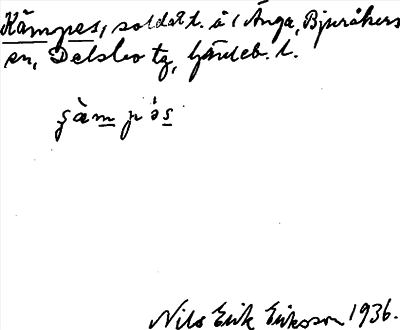 Kämpes, soldatt. å / Änga, Bjuråkers
sn, Delsbo tg, Gävleb. l.
şàm pə̀s
Nils Erik Eriksson 1936.